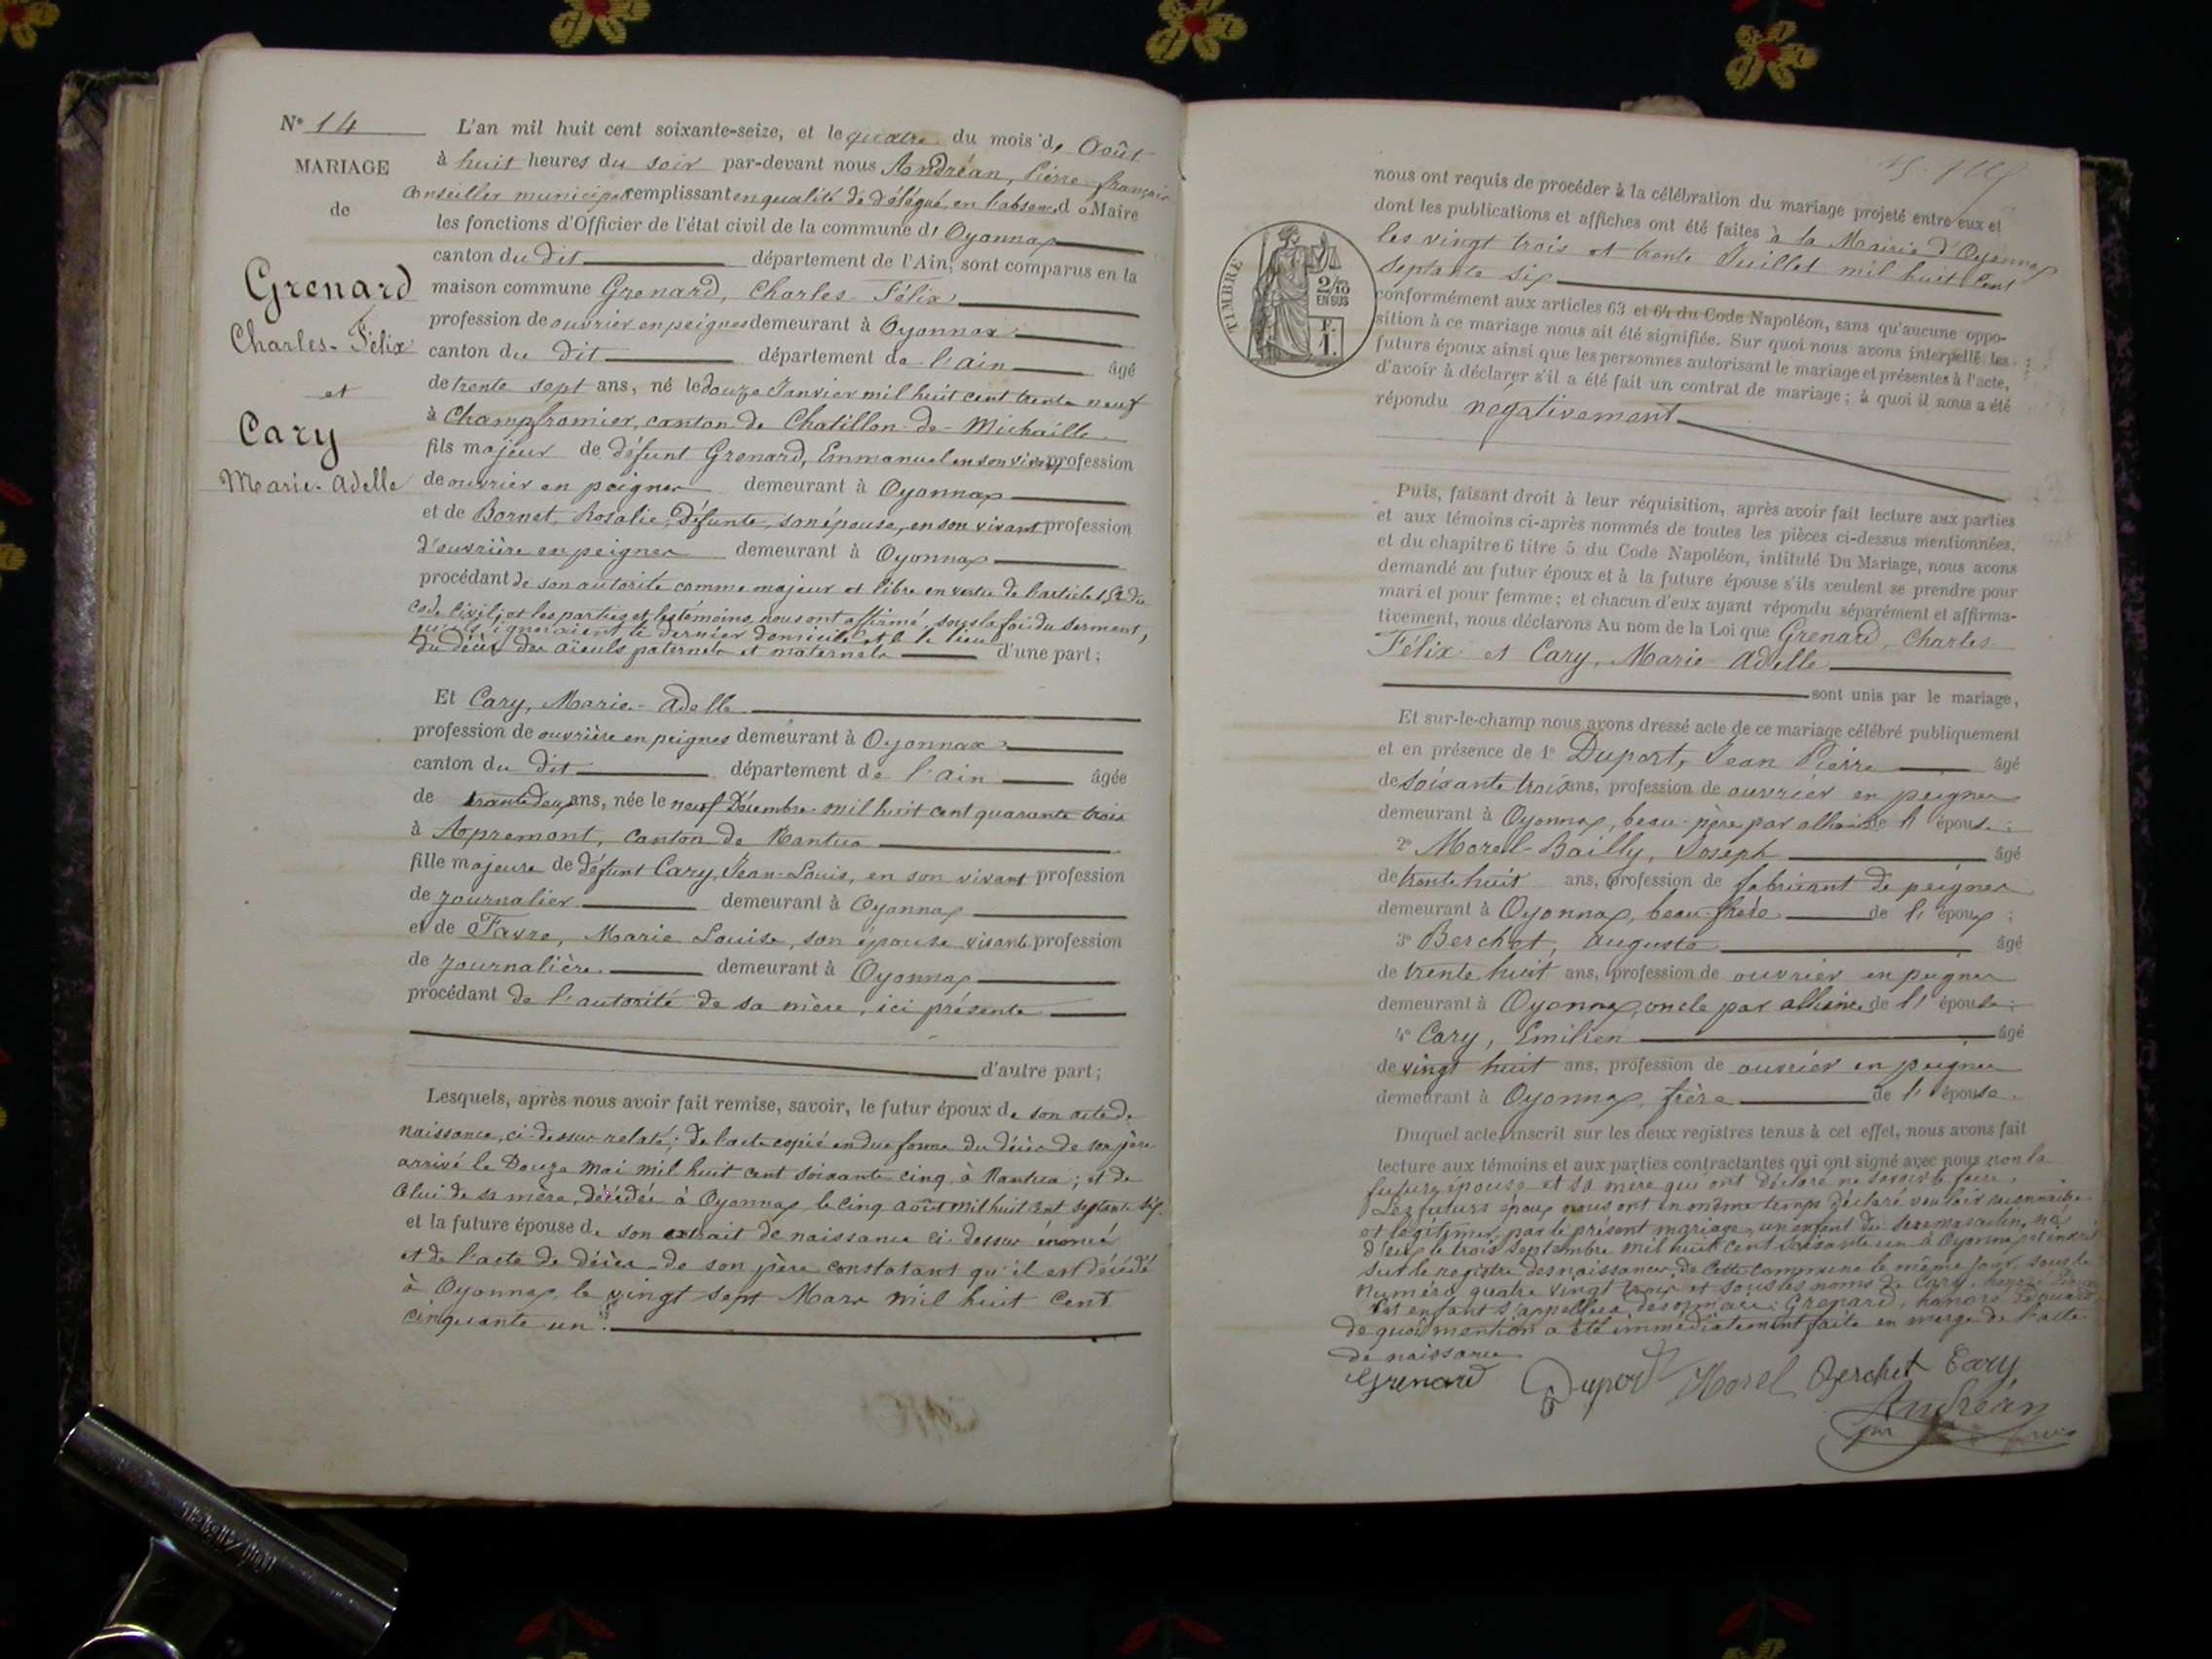 N° 14
MARIAGE
de
Grenard
Charles-Félix
et
Cary
Marie-Adelle
L'an mil huit cent soixante-seize, et le quatre du mois d, Août
à huit heures du soir par-devant nous Andréan, Pierre-français
Conseiller municipal remplissant en qualité de délégué, en l'absence d Maire
les fonctions d'Officier de l'état civil de la commune d' Oyonnax
canton du dit département de l'Ain, sont comparus en la
maison commune Grenard, Charles Félix
profession de ouvrier en peignes demeurant à Oyonnax
canton du dit département de l'ain âgé
de trente sept ans, né le douze Janvier mil huit cent trente neuf
à Champfromier, canton de Chatillon-de-Michaille
fils majeur de défunt Grenard, Emmanuel en son vivant profession
de ouvrier en peignes demeurant à Oyonnax
et de Bornet, Rosalie, défunte, son épouse, en son vivant profession
d'ouvrière en peignes demeurant à Oyonnax
procédant de son autorité comme majeur et libre en vertu de l'article du
Code Civil; et les parties et les témoins nous ont affirmé, sous la foi du serment,
qu'ils ignoraient le dernier domicile et le lieu
du décès des aïeuls paternels et maternels d'une part;
Et Cary, Marie-Adelle
profession de ouvrière en peignes demeurant à Oyonnax
canton du dit département de l'ain âgée
de trente deux ans, née le neuf Décembre mil huit cent quarante trois
à Apremont, canton de Nantua
fille majeure de défunt Cary, Jean-Louis, en son vivant profession
de journalier demeurant à Oyonnax
et de Favre, Marie Louise, son épouse vivante profession
de journalière demeurant à Oyonnax
procédant de l'autorité de sa mère, ici présente
d'autre part;
Lesquels, après nous avoir fait remise, savoir, le futur époux de son acte de
naissance, ci-dessus relaté; de l'acte copié en due forme du décès de son père
arrivé le Douze mai mil huit cent soixante cinq à Nantua; et de
celui de sa mère, décédée à Oyonnax le cinq août mil huit cent septante six
et la future épouse d, son extrait de naissance ci-dessus énoncé
et de l'acte de décès de son père constatant qu'il est décédé
à Oyonnax, le vingt sept Mars mil huit cent
cinquante un.
nous ont requis de procéder à la célébration du mariage projeté entre eux et
dont les publications et affiches ont été faites à la Mairie d'Oyonnax
les vingt trois et trente Juillet mil huit cent
septante six
TIMBRE
2/10
EN SUS
F.
1.
conformément aux articles 63 et 64 du Code Napoléon, sans qu'aucune oppo-
sition à ce mariage nous ait été signifiée. Sur quoi nous avons interpellé les
futurs époux ainsi que les personnes autorisant le mariage et présentes à l'acte,
d'avoir à déclarer s'il a été fait un contrat de mariage; à quoi il nous a été
répondu négativement
Puis, faisant droit à leur réquisition, après avoir fait lecture aux parties
et aux témoins ci-après nommés de toutes les pièces ci-dessus mentionnées,
et du chapitre 6 titre 5 du Code Napoléon, intitulé Du Mariage, nous avons
demandé au futur époux et à la future épouse s'ils veulent se prendre pour
mari et pour femme; et chacun d'eux ayant répondu séparément et affirma-
tivement, nous déclarons Au nom de la Loi que Grenard, Charles
Félix et Cary, Marie-Adelle
sont unis par le mariage,
Et sur-le-champ nous avons dressé acte de ce mariage célébré publiquement
et en présence de 1° Duport, Jean Pierre âgé
de soixante trois ans, profession de ouvrier en peignes
demeurant à Oyonnax, beau-père par alliance de l'épouse;
2° Morel-Bailly, Joseph âgé
de trente huit ans, profession de fabricant de peignes
demeurant à Oyonnax, beau-frère de l'époux;
3° Berchet, Auguste âgé
de trente huit ans, profession de ouvrier en peignes
demeurant à Oyonnax, oncle par alliance de l'épouse;
4° Cary, Emilien âgé
de vingt huit ans, profession de ouvrier en peignes
demeurant à Oyonnax, frère de l'épouse.
Duquel acte, inscrit sur les deux registres tenus à cet effet, nous avons fait
lecture aux témoins et aux parties contractantes qui ont signé avec nous non la
future épouse et sa mère qui ont déclaré ne savoir le faire.
Les futurs époux nous ont en même temps déclaré vouloir reconnaître
et légitimer, par le présent mariage, un enfant du sexe masculin, né
d'eux le trois septembre mil huit cent soixante un à Oyonnax et inscrit
sur le registre des naissances de cette commune le même jour, sous le
numéro quatre vingt trois et sous les noms de Cary, honoré
Cet enfant s'appellera désormais: Grenard, honoré Edouard
de quoi mention a été immédiatement faite en marge de l'acte
de naissance
Grenard Duport Morel Berchet Cary
Andréan